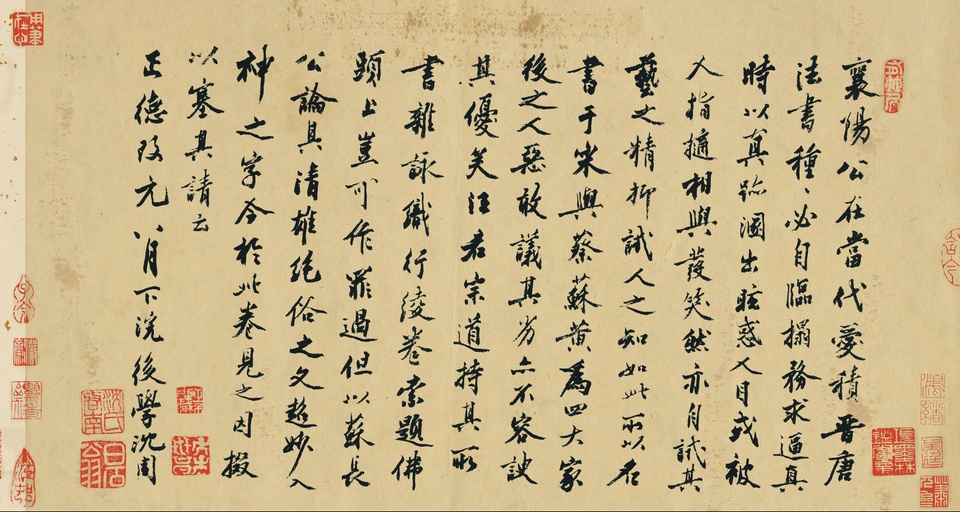 襄陽公在當代愛積晉唐
法書種、必自臨搨務求逼真
時以真跡溷出眩惑人目或被
人指擿相與發笑然亦自試其
藝之精抑試人之知如此所以名
書于宋與蔡蘇黃為四大家
後之人惡敢議其劣亦不容諛
其優矣汪君宗道持其所
書雜詠織行綾卷索題佛
頭上豈可作罪過但以蘇長
公論其清雄絶俗之文超妙入
神之字今於此卷見之因掇
以塞其請云
正德改元八月下浣後學沈周